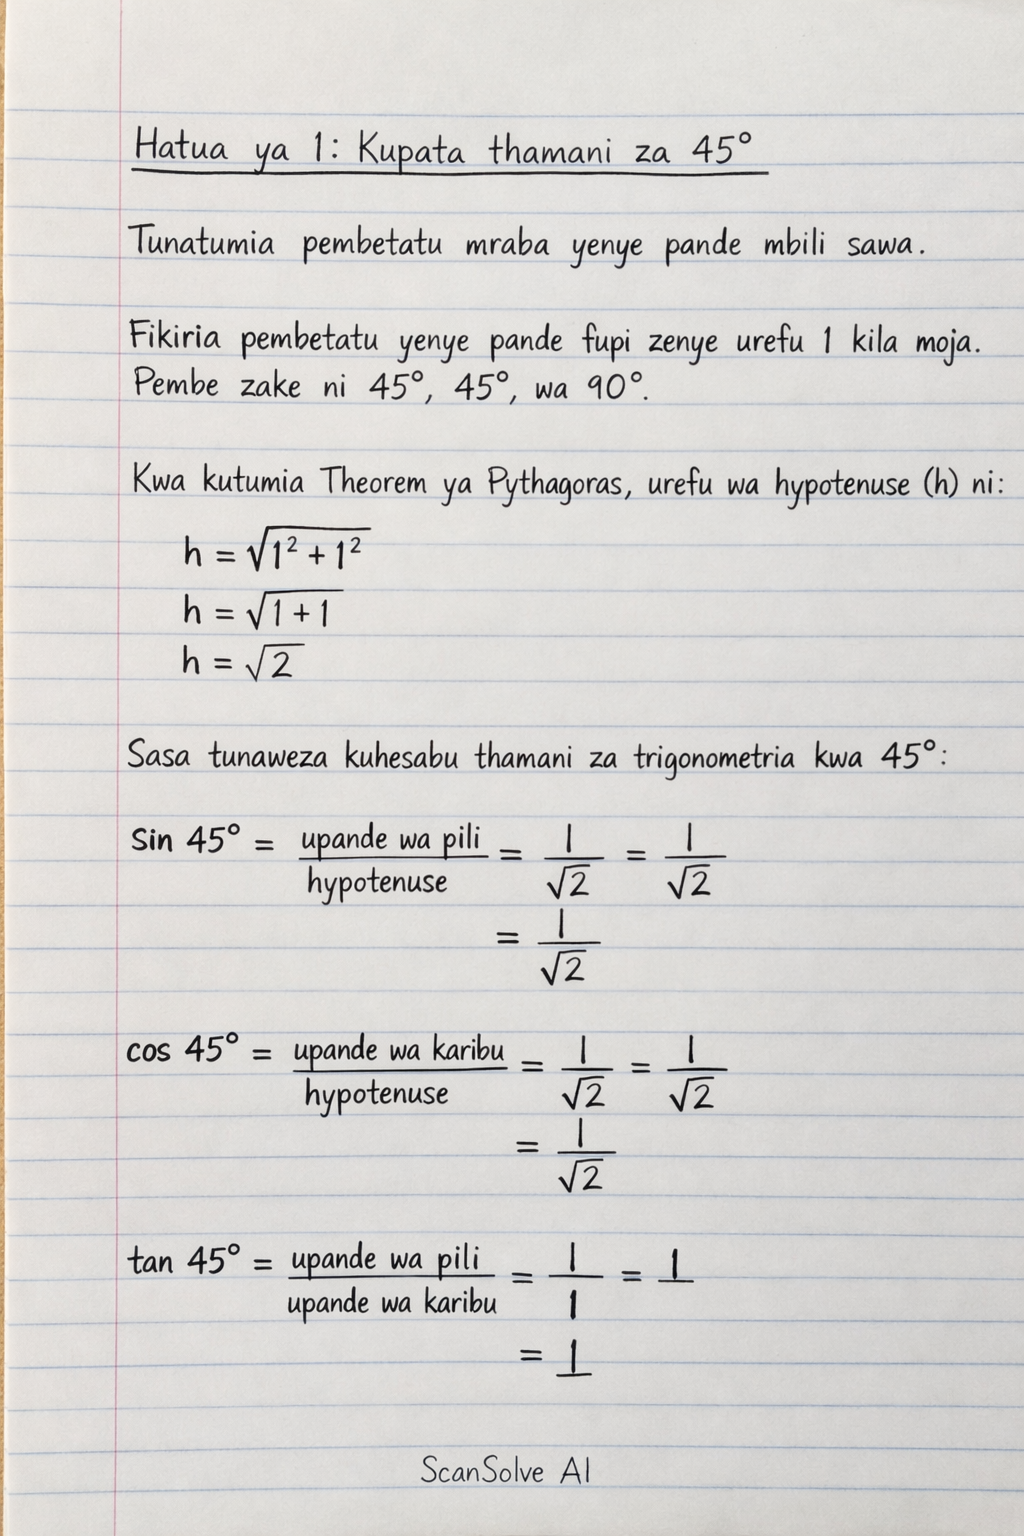 Hatua ya 1: Kupata thamani za 45°
Tunatumia pembetatu mraba yenye pande mbili sawa.
Fikiria pembetatu yenye pande fupi zenye urefu 1 kila moja.
Pembe zake ni 45°, 45°, wa 90°.
Kwa kutumia Theorem ya Pythagoras, urefu wa hypotenuse (h) ni:
h = √(1² + 1²)
h = √(1 + 1)
h = √2
Sasa tunaweza kuhesabu thamani za trigonometria kwa 45°:
Sin 45° = upande wa pili / hypotenuse = 1/√2 = 1/√2
= 1/√2
cos 45° = upande wa karibu / hypotenuse = 1/√2 = 1/√2
= 1/√2
tan 45° = upande wa pili / upande wa karibu = 1/1 = 1
= 1
ScanSolve AI